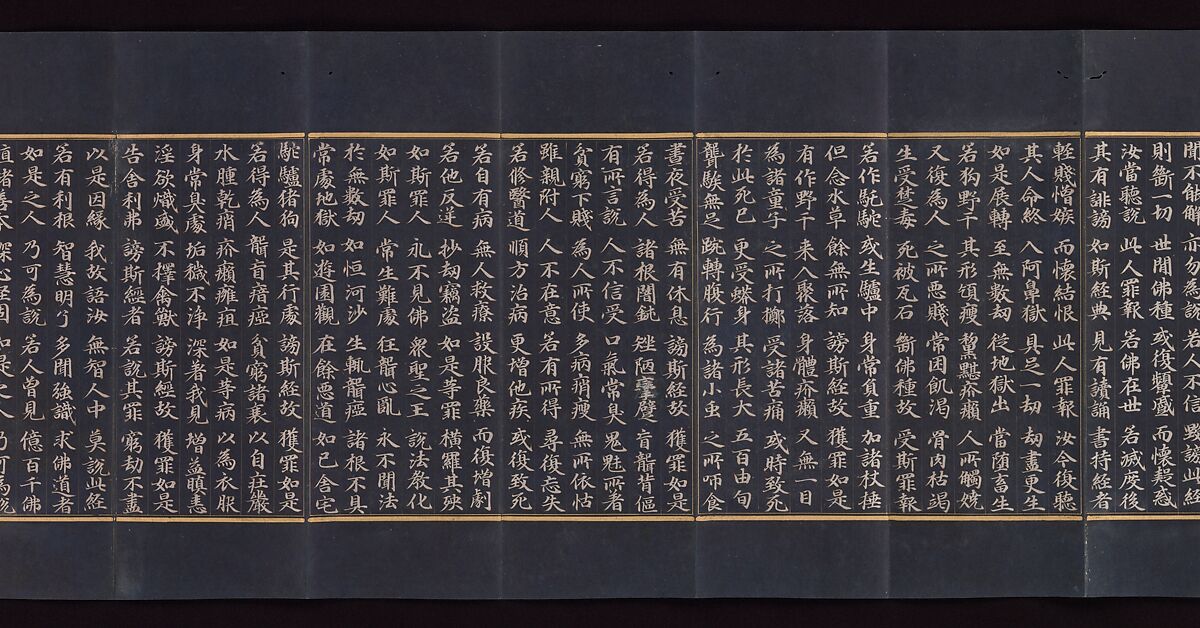 聞不能解 亦勿為說 若人不信 毀謗此經
則斷一切 世間佛種 或復顰蹙 而懷疑惑
汝當聽說 此人罪報 若佛在世 若滅度後
其有誹謗 如斯經典 見有讀誦 書持經者
輕賤憎嫉 而懷結恨 此人罪報 汝今復聽
其人命終 入阿鼻獄 具足一劫 劫盡更生
如是展轉 至無數劫 從地獄出 當墮畜生
若狗野干 其形頜瘦 黧黮疥癩 人所觸嬈
又復為人 之所惡賤 常困飢渴 骨肉枯竭
生受楚毒 死被瓦石 斷佛種故 受斯罪報
若作馲駝 或生驢中 身常負重 加諸杖捶
但念水草 餘無所知 謗斯經故 獲罪如是
有作野干 來入聚落 身體疥癩 又無一目
為諸童子 之所打擲 受諸苦痛 或時致死
於此死已 更受蟒身 其形長大 五百由旬
聾騃無足 踠轉腹行 為諸小虫 之所唼食
晝夜受苦 無有休息 謗斯經故 獲罪如是
若得為人 諸根闇鈍 矬陋攣躄 盲聾背傴
有所言說 人不信受 口氣常臭 鬼魅所著
貧窮下賤 為人所使 多病痟瘦 無所依怙
雖親附人 人不在意 若有所得 尋復忘失
若修醫道 順方治病 更增他疾 或復致死
若自有病 無人救療 設服良藥 而復增劇
若他反逆 抄劫竊盜 如是等罪 橫羅其殃
如斯罪人 永不見佛 眾聖之王 說法教化
如斯罪人 常生難處 狂聾心亂 永不聞法
於無數劫 如恒河沙 生輒聾瘂 諸根不具
常處地獄 如遊園觀 在餘惡道 如己舍宅
駝驢猪狗 是其行處 謗斯經故 獲罪如是
若得為人 聾盲瘖瘂 貧窮諸衰 以自莊嚴
水腫乾痟 疥癩癰疽 如是等病 以為衣服
身常臭處 垢穢不淨 深著我見 增益瞋恚
淫欲熾盛 不擇禽獸 謗斯經故 獲罪如是
告舍利弗 謗斯經者 若說其罪 窮劫不盡
以是因緣 我故語汝 無智人中 莫說此經
若有利根 智慧明了 多聞強識 求佛道者
如是之人 乃可為說 若人曾見 億百千佛
殖諸善本 深心堅固 如是之人 乃可為說